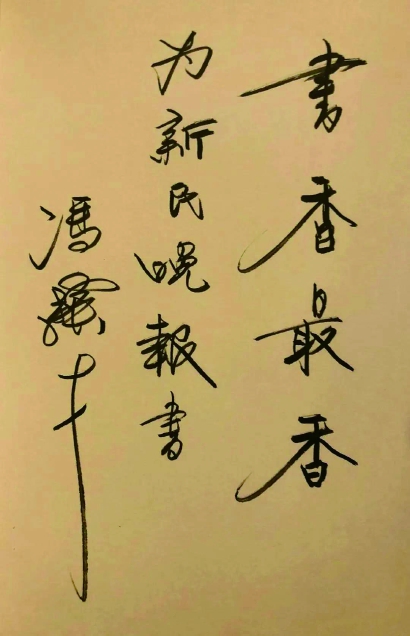 書香最香
为新民晚報書
冯骥才